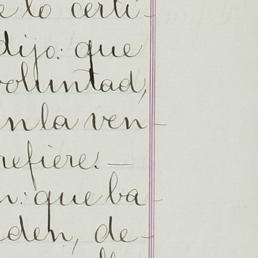 e lo certi-
dijo: que
voluntad,
en la ven-
refiere.-
n: que ba-
eden, de-